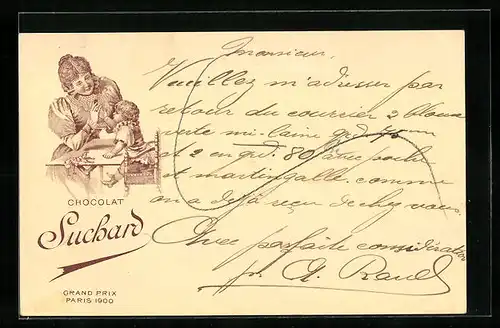 Monsieur,
Veuillez m'adresser par
retour du courrier 2 blouses
verte mi-laine
et 2 en grd. 80
et martingalle comme
on a déjà reçu de chez vous.
Avec parfaite considération
CHOCOLAT
Suchard
GRAND PRIX
PARIS 1900